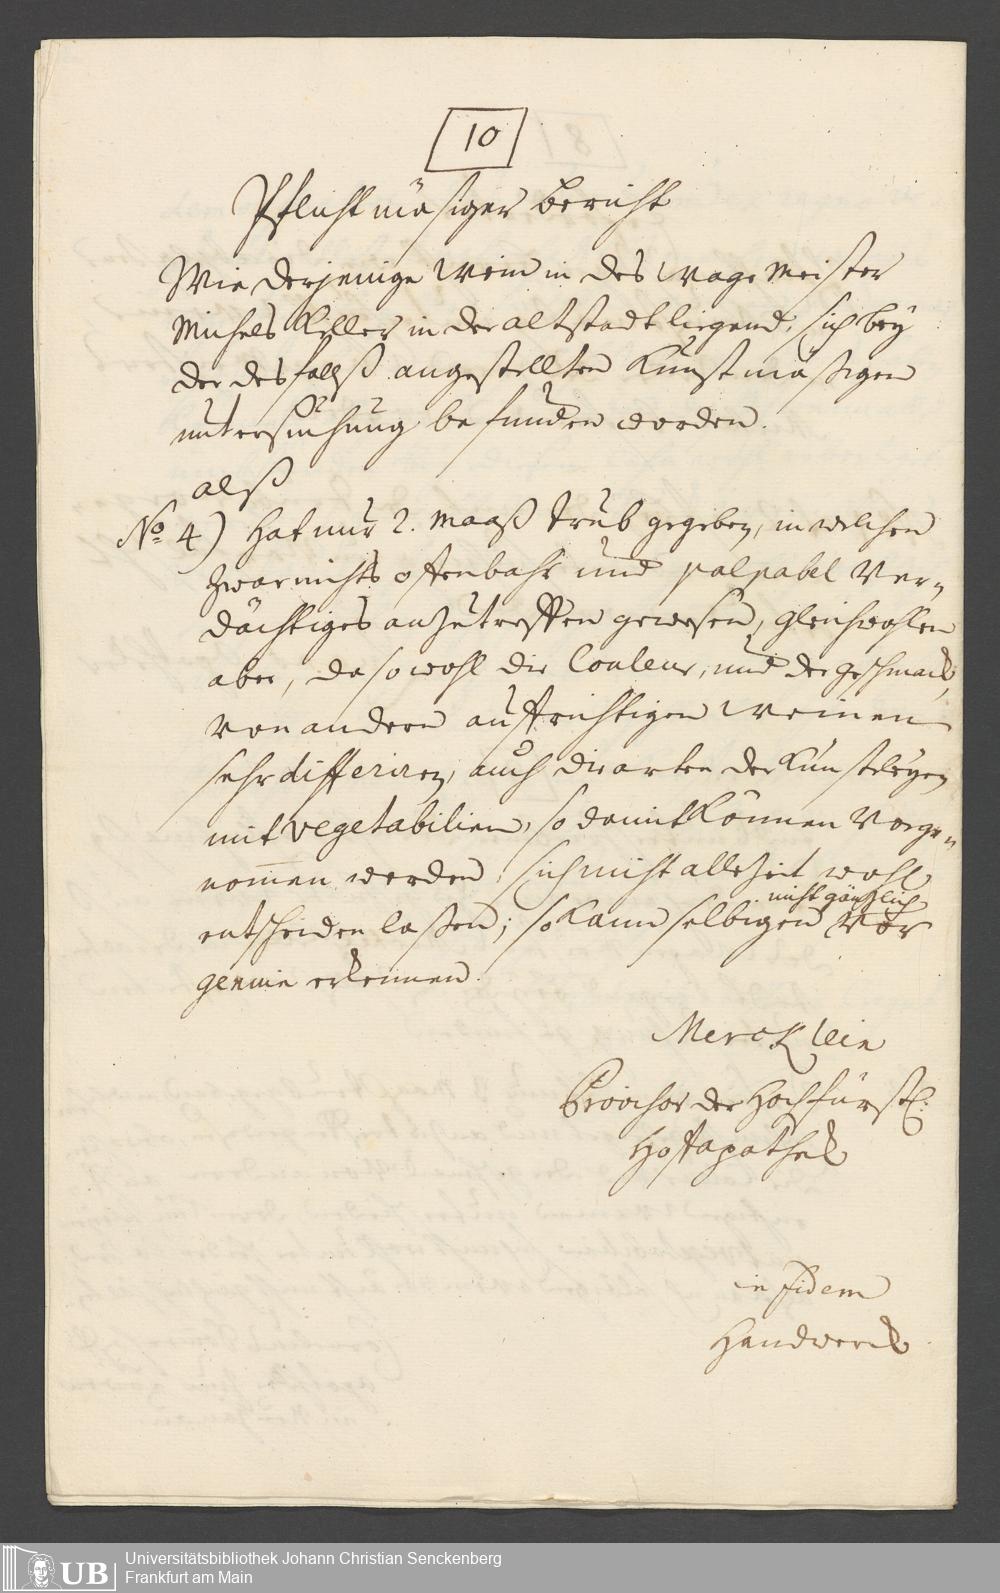 10
Pflichtmäsiger Bericht
Wie derjenige Wein in des Wagemeister
Michels Keller in der altstadt liegend, sich bey
der desfallß angestellten Kunstmäßigen
untersuchung befunden worden.
alß
No. 4) Hat nur 2. Maaß trüb gegeben, in welchen
zwar nichts offenbahr und palpabel Ver-
dächtiges anzutreffen gewesen, gleichwohlen
aber, da sowohl die Couleur, und der geschmack,
von andern aufrichtigen Weinen
sehr differiren, auch die arten der Künsteleyen
mit vegetabilien, so damit können vorge-
nom̄en werden, sich nicht allezeit wohl
entscheiden laßen; so kann selbigen nicht gänzlich vor
genuin erkennen.
Mercklein
Provisor der Hochfürstl.
Hofapothek
in fidem
Handwerck
Universitätsbibliothek Johann Christian Senckenberg
Frankfurt am Main
UB